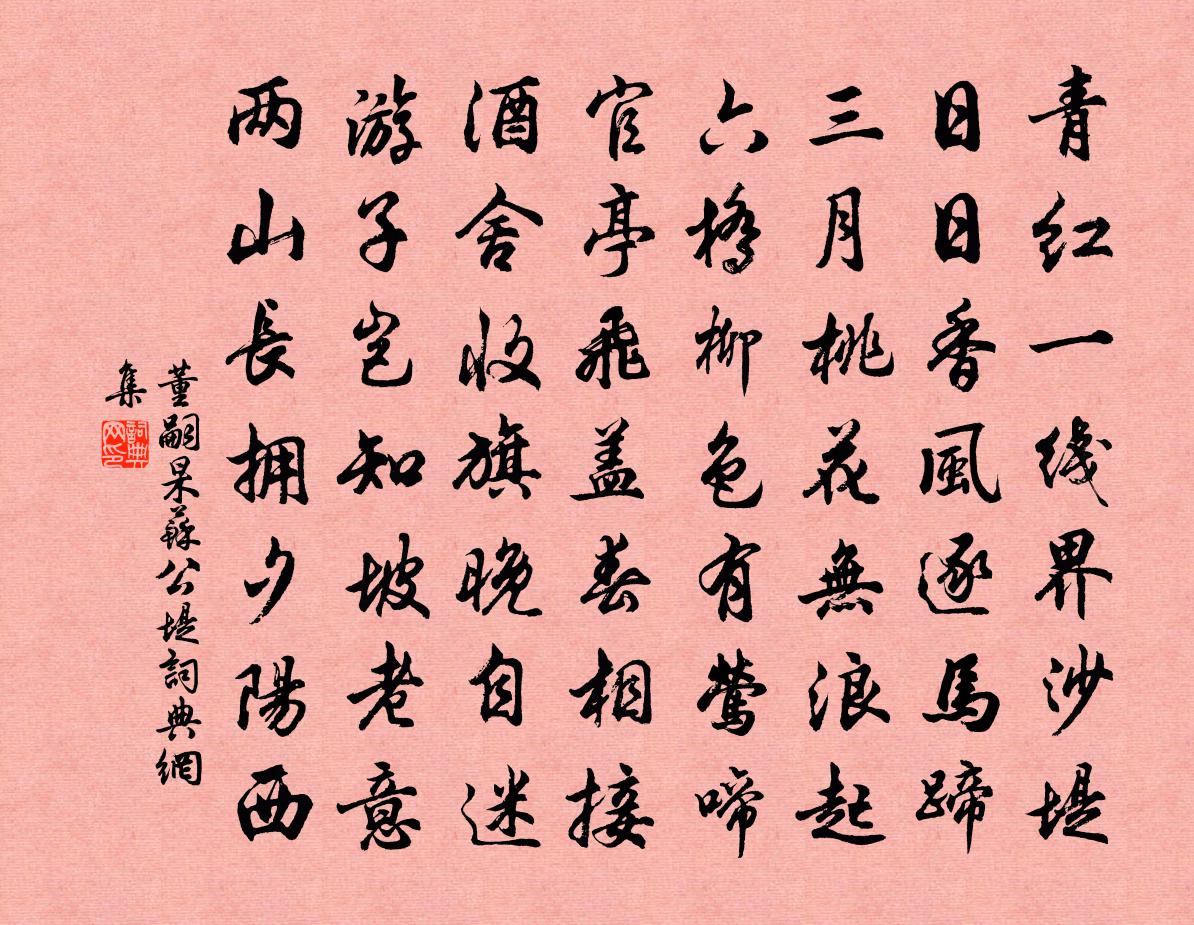 青红一线界沙堤
日日香風逐馬蹄
三月桃花無浪起
六橋柳色有鶯啼
官亭飛盖春相接
酒舍收旗晚自迷
游子岂知坡老意
两山長拥夕陽西
董嗣杲蘇公堤詞典網
集
詞典
网印